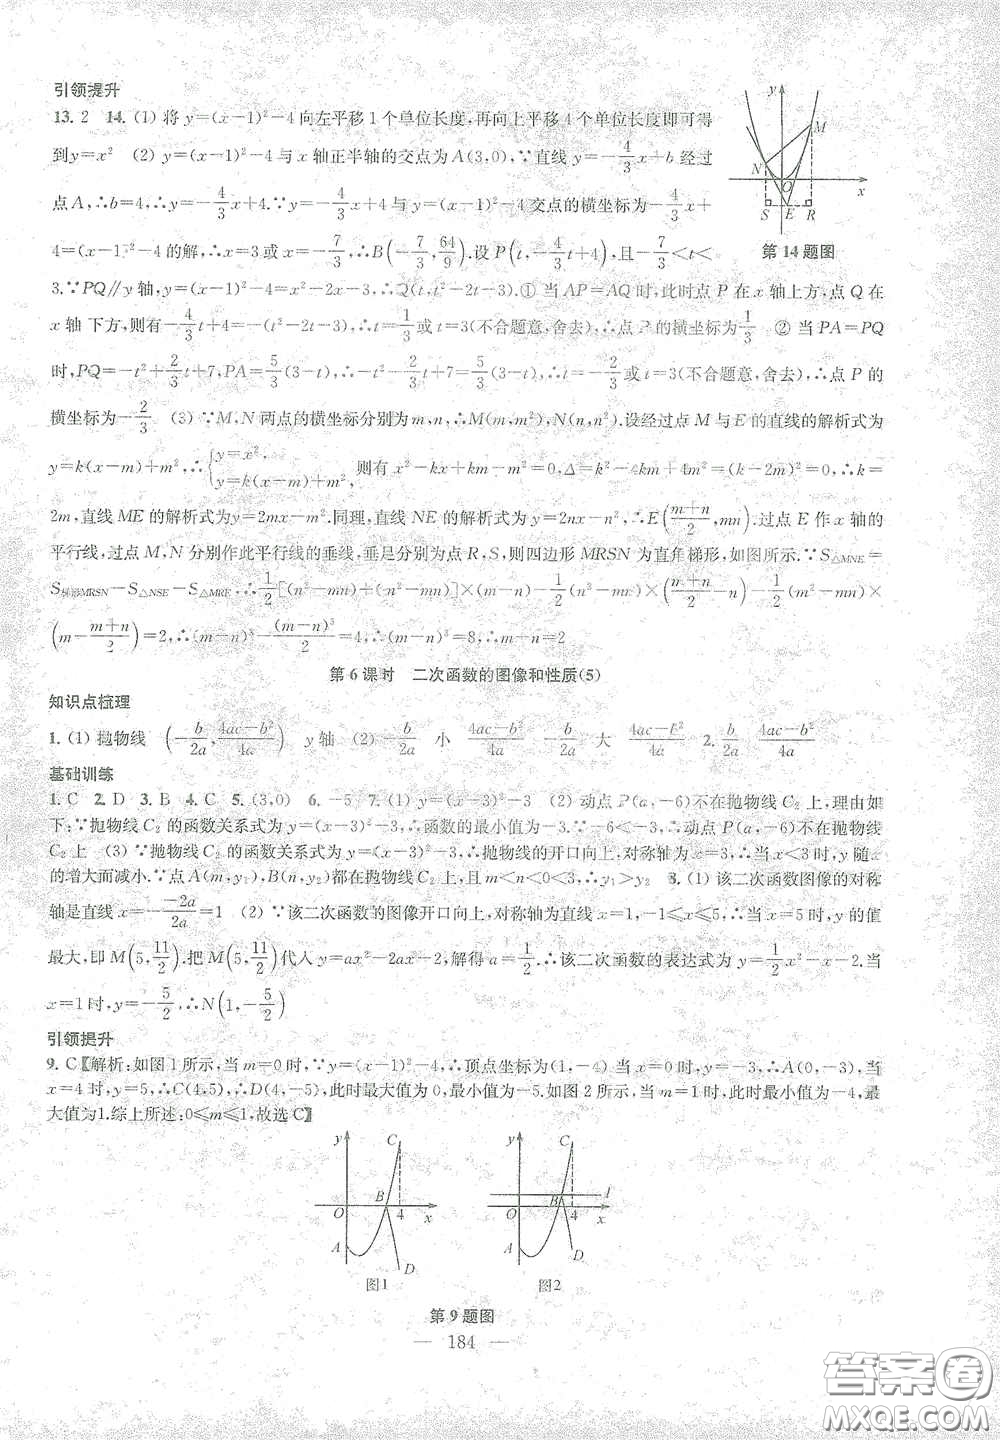 引领提升
13. 2　14. (1) 将 y=(x-1)²-4 向左平移 1 个单位长度,再向上平移 4 个单位长度即可得
到y=x²　(2) y=(x-1)²-4 与 x 轴正半轴的交点为 A(3,0),∵直线 y=-4/3x+b 经过
点 A,∴b=4,∴y=-4/3x+4.∵y=-4/3x+4 与 y=(x-1)²-4 交点的横坐标为-4/3x+
4=(x-1)²-4 的解,∴x=3或 x=-7/3,∴B(-7/3,64/9).设 P(t,-4/3t+4),且-7/3<t<
3.∵PQ∥y 轴,∴y=(x-1)²-4=x²-2x-3,∴Q(t,t²-2t-3).① 当 AP=AQ时,此时点 P 在 x 轴上方,点 Q 在
x 轴 下方,则有-4/3t+4=-(t²-2t-3),∴t=1/3或 t=3(不合题意,舍去),∴点 P 的横坐标为1/3　② 当 PA=PQ
时,PQ=-t²+2/3t+7,PA=5/3(3-t),∴-t²+2/3t+7=5/3(3-t),∴t=-2/3或 t=3(不合题意,舍去),∴点 P 的
横坐标为-2/3　(3) ∵M,N 两点的横坐标分别为 m,n,∴M(m,m²),N(n,n²).设经过点 M 与 E 的直线的解析式为
y=k(x-m)+m²,∴{y=x², y=k(x-m)+m², 则有 x²-kx+km-m²=0,Δ=k²-4km+4m²=(k-2m)²=0,∴k=
2m,直线 ME 的解析式为y=2mx-m².同理,直线 NE 的解析式为 y=2nx-n²,∴E((m+n)/2,mn).过点 E 作 x 轴的
平行线,过点 M,N 分别作此平行线的垂线,垂足分别为点 R,S,则四边形 MRSN 为直角梯形,如图所示.∵S△MNE=
S梯形MRSN-S△NSE-S△MRE,∴1/2[(n²-mn)+(m²-mn)]×(m-n)-1/2(n²-mn)×((m+n)/2-n)-1/2(m²-mn)×
(m-(m+n)/2)=2,∴(m-n)³-(m-n)³/2=4,∴(m-n)³=8,∴m-n=2
第 14 题图
y M N O x S E R
第 6 课时　二次函数的图像和性质(5)
知识点梳理
1. (1) 抛物线　(-b/2a,(4ac-b²)/4a)　y 轴　(2) -b/2a　小　(4ac-b²)/4a　-b/2a　大　(4ac-b²)/4a　2. -b/2a　(4ac-b²)/4a
基础训练
1. C　2. D　3. B　4. C　5. (3,0)　6. -5　7. (1) y=(x-3)²-3　(2) 动点 P(a,-6)不在抛物线 C₂ 上,理由如
下:∵抛物线 C₂ 的函数关系式为 y=(x-3)²-3,∴函数的最小值为-3.∵-6<-3,∴动点 P(a,-6)不在抛物线
C₂上　(3) ∵抛物线C₂ 的函数关系式为 y=(x-3)²-3,∴抛物线的开口向上,对称轴为x=3,∴当 x<3 时,y 随x
的增大而减小.∵点 A(m,y₁),B(n,y₂)都在抛物线 C₂上,且 m<n<3,∴y₁>y₂　8. (1) 该二次函数图像的对称
轴是直线 x=--2a/2a=1　(2) ∵该二次函数的图像开口向上,对称轴为直线 x=1,-1≤x≤5,∴当 x=5 时,y 的值
最大,即 M(5,11/2).把 M(5,11/2)代入 y=ax²-2ax-2,解得 a=1/2.∴该二次函数的表达式为 y=1/2x²-x-2.当
x=1时,y=-5/2,∴N(1,-5/2)
引领提升
9. C【解析:如图 1 所示,当 m=0 时,∵y=(x-1)²-4,∴顶点坐标为(1,-4) 当 x=0时,y=-3,∴A(0,-3),当
x=4 时,y=5,∴C(4,5),∴D(4,-5),此时最大值为 0,最小值为-5.如图 2 所示,当 m=1 时,此时最小值为-4,最
大值为1.综上所述:0≤m≤1,故选 C】
y C B O 4 x A D
图1
y C l B O 4 x A D
图2
第 9 题图
— 184 —
答案圈
MXQE.COM